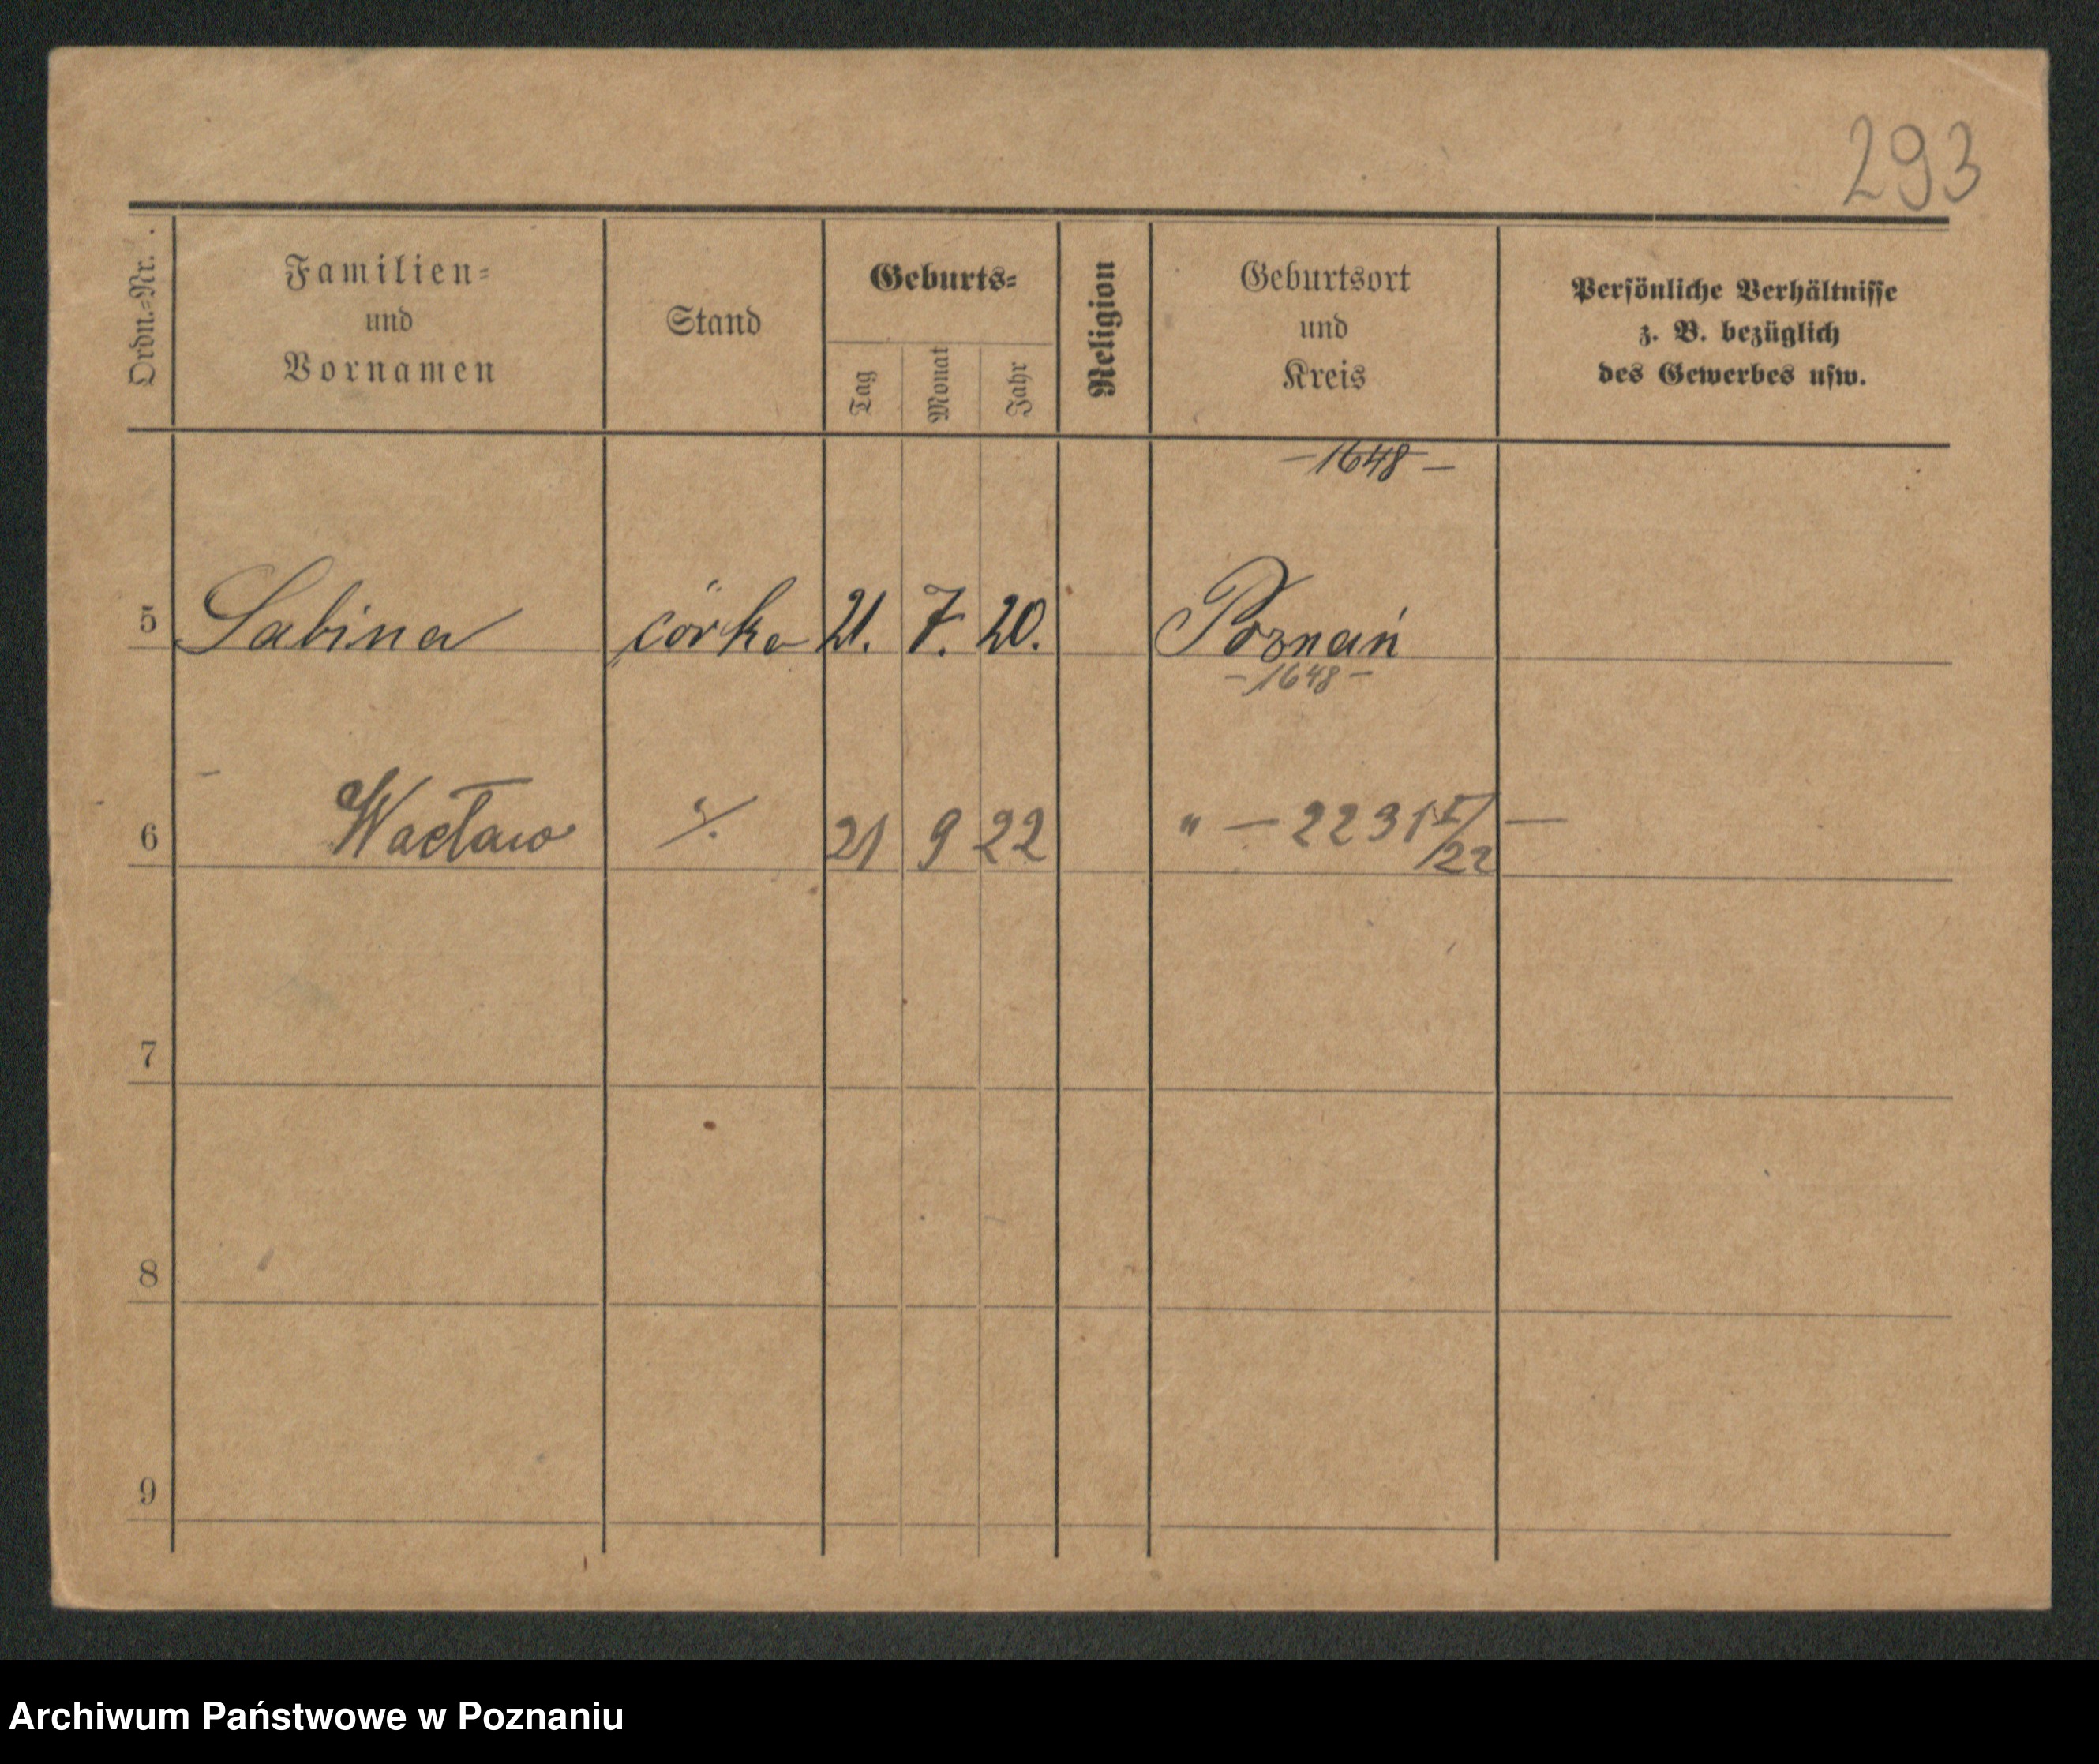 293
Ordn.-Nr.
Familien-
und
Vornamen
Stand
Geburts-
Tag
Monat
Jahr
Religion
Geburtsort
und
Kreis
Persönliche Verhältnisse
z. B. bezüglich
des Gewerbes usw.
— 1648 —
5 Sabina córka 21. 7. 20. Poznań
— 1648 —
6 Wacław 21 9 22 " — 2231 /22 —
7
8
9
Archiwum Państwowe w Poznaniu